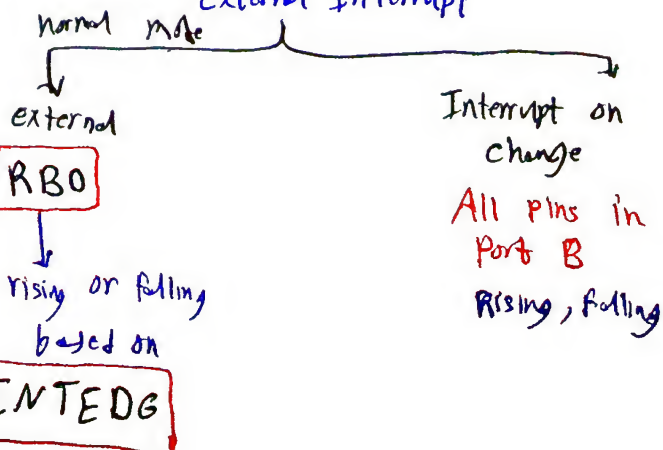 External Interrupt
normal mode
external
RB0
rising or falling
based on
INTEDG
Interrupt on
change
All pins in
Port B
Rising, falling